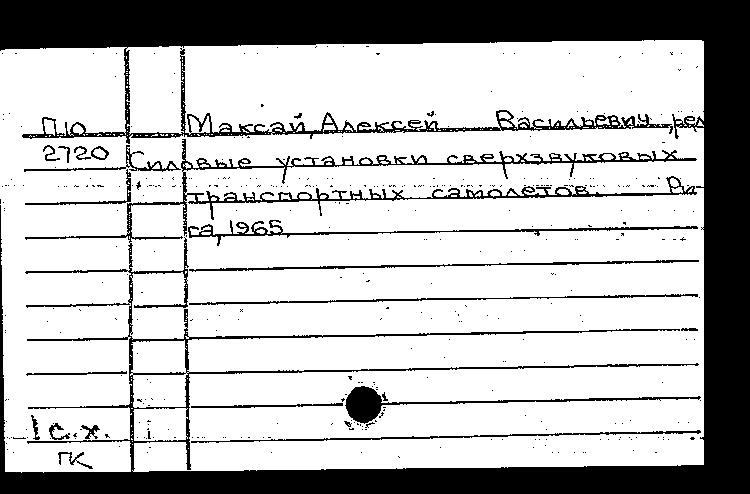 П10 Максай, Алексей Васильевич, ред
2720 Силовые установки сверхзвуковых
транспортных самолетов. Ри-
га, 1965.
1 с.х.
ГК